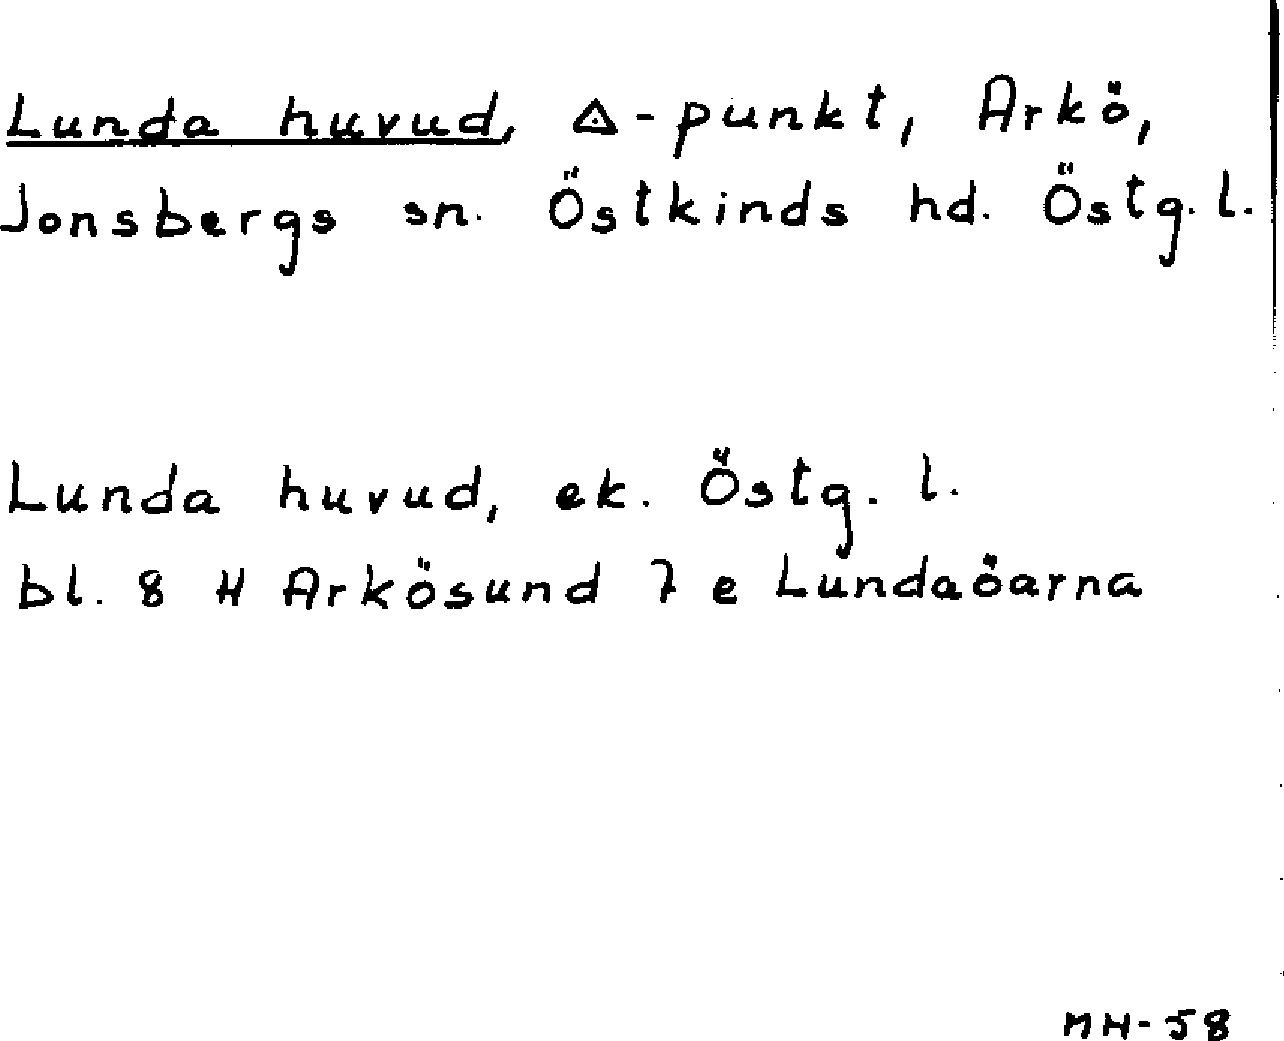 Lunda huvud, △-punkt, Arkö,
Jonsbergs sn. Östkinds hd. Östg. l.
Lunda huvud, ek. Östg. l.
bl. 8 H Arkösund 7 e Lundaöarna
MH-58